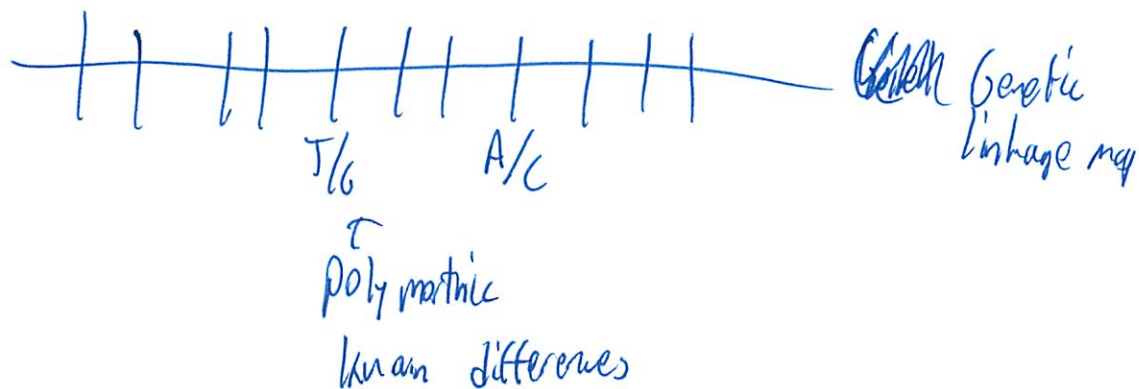 Genetic
linkage map
T/G A/C
polymorphic
known differences